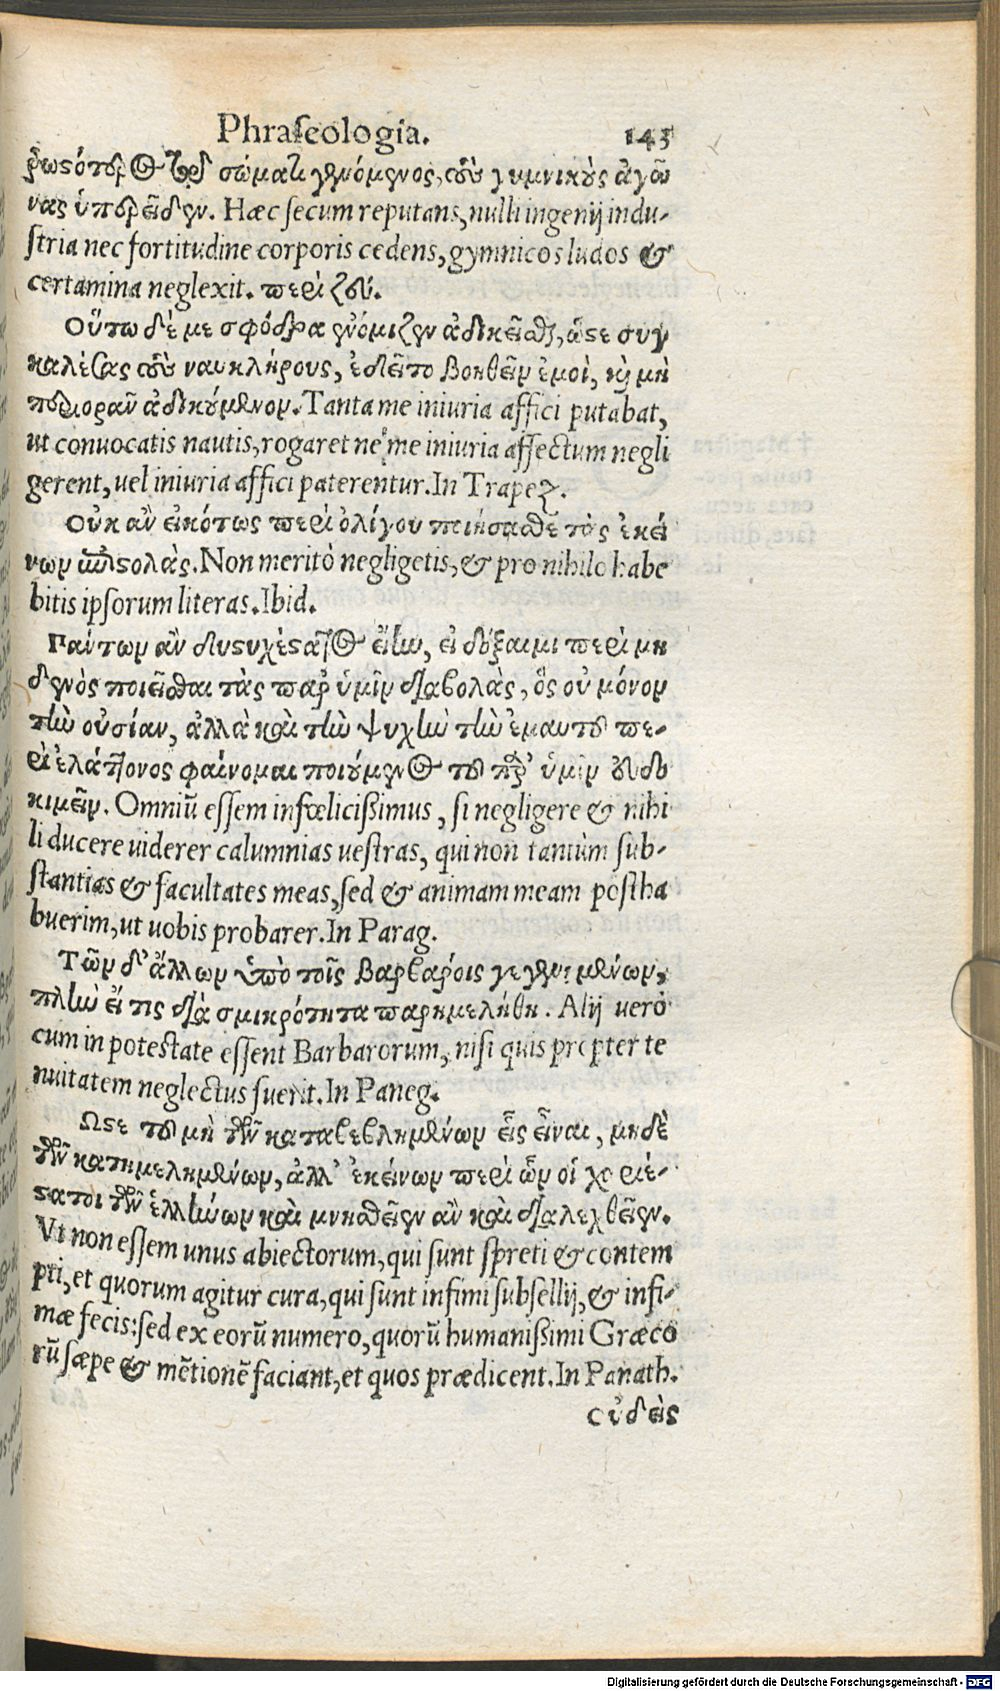 Phraseologia. 143
ῥωστότερος τῷ σώματι γενόμενος, τοὺς γυμνικοὺς ἀγῶ
νας ὑπερεῖδεν. Hæc secum reputans, nulli ingenij indu-
stria nec fortitudine corporis cedens, gymnicos ludos &
certamina neglexit. περὶ ζεύ.
Οὕτω δέ με σφόδρα ἐνόμιζεν ἀδικεῖσθαι, ὥστε συγ
καλέσας τοὺς ναυκλήρους, ἐδεῖτο βοηθεῖν ἐμοὶ, καὶ μὴ
περιορᾶν ἀδικούμενον. Tanta me iniuria affici putabat,
ut conuocatis nautis, rogaret ne me iniuria affectum negli
gerent, uel iniuria affici paterentur. In Trapez.
Οὐκ ἂν εἰκότως περὶ ὀλίγου ποιήσασθε τὰς ἐκεί
νων ἐπιστολὰς. Non meritò negligetis, & pro nihilo habe
bitis ipsorum literas. Ibid.
Πάντων ἂν δυστυχέστατος εἴην, εἰ δόξαιμι περὶ μη
δενὸς ποιεῖσθαι τὰς παρ' ὑμῖν διαβολὰς, ὃς οὐ μόνον
τὴν οὐσίαν, ἀλλὰ καὶ τὴν ψυχὴν τὴν ἐμαυτοῦ πε-
ρὶ ἐλάττονος φαίνομαι ποιούμενος τοῦ παρ' ὑμῖν εὐδο
κιμεῖν. Omniũ essem infœlicißimus, si negligere & nihi
li ducere uiderer calumnias uestras, qui non tantùm sub-
stantias & facultates meas, sed & animam meam postha
buerim, ut uobis probarer. In Parag.
Τῶν δ' ἄλλων ὑπὸ τοῖς βαρβάροις γεγενημένων,
πλὴν εἴ τις διὰ σμικρότητα παρημελήθη. Alij uerò
cum in potestate essent Barbarorum, nisi quis propter te
nuitatem neglectus fuerit. In Paneg.
Ωστε τοῦ μὴ τῶν καταβεβλημένων εἷς εἶναι, μηδὲ
τῶν κατημελημένων, ἀλλ' ἐκείνων περὶ ὧν οἱ χαριέ-
στατοι τῶν ἑλλήνων καὶ μνησθεῖεν ἂν καὶ διαλεχθεῖεν.
Vt non essem unus abiectorum, qui sunt spreti & contem
pti, et quorum agitur cura, qui sunt infimi subsellij, & infi-
mæ fecis: sed ex eorũ numero, quorũ humanißimi Græco
rũ sæpe & mẽtionẽ faciant, et quos prædicent. In Panath.
οὐδεὶς
Digitalisierung gefördert durch die Deutsche Forschungsgemeinschaft - DFG